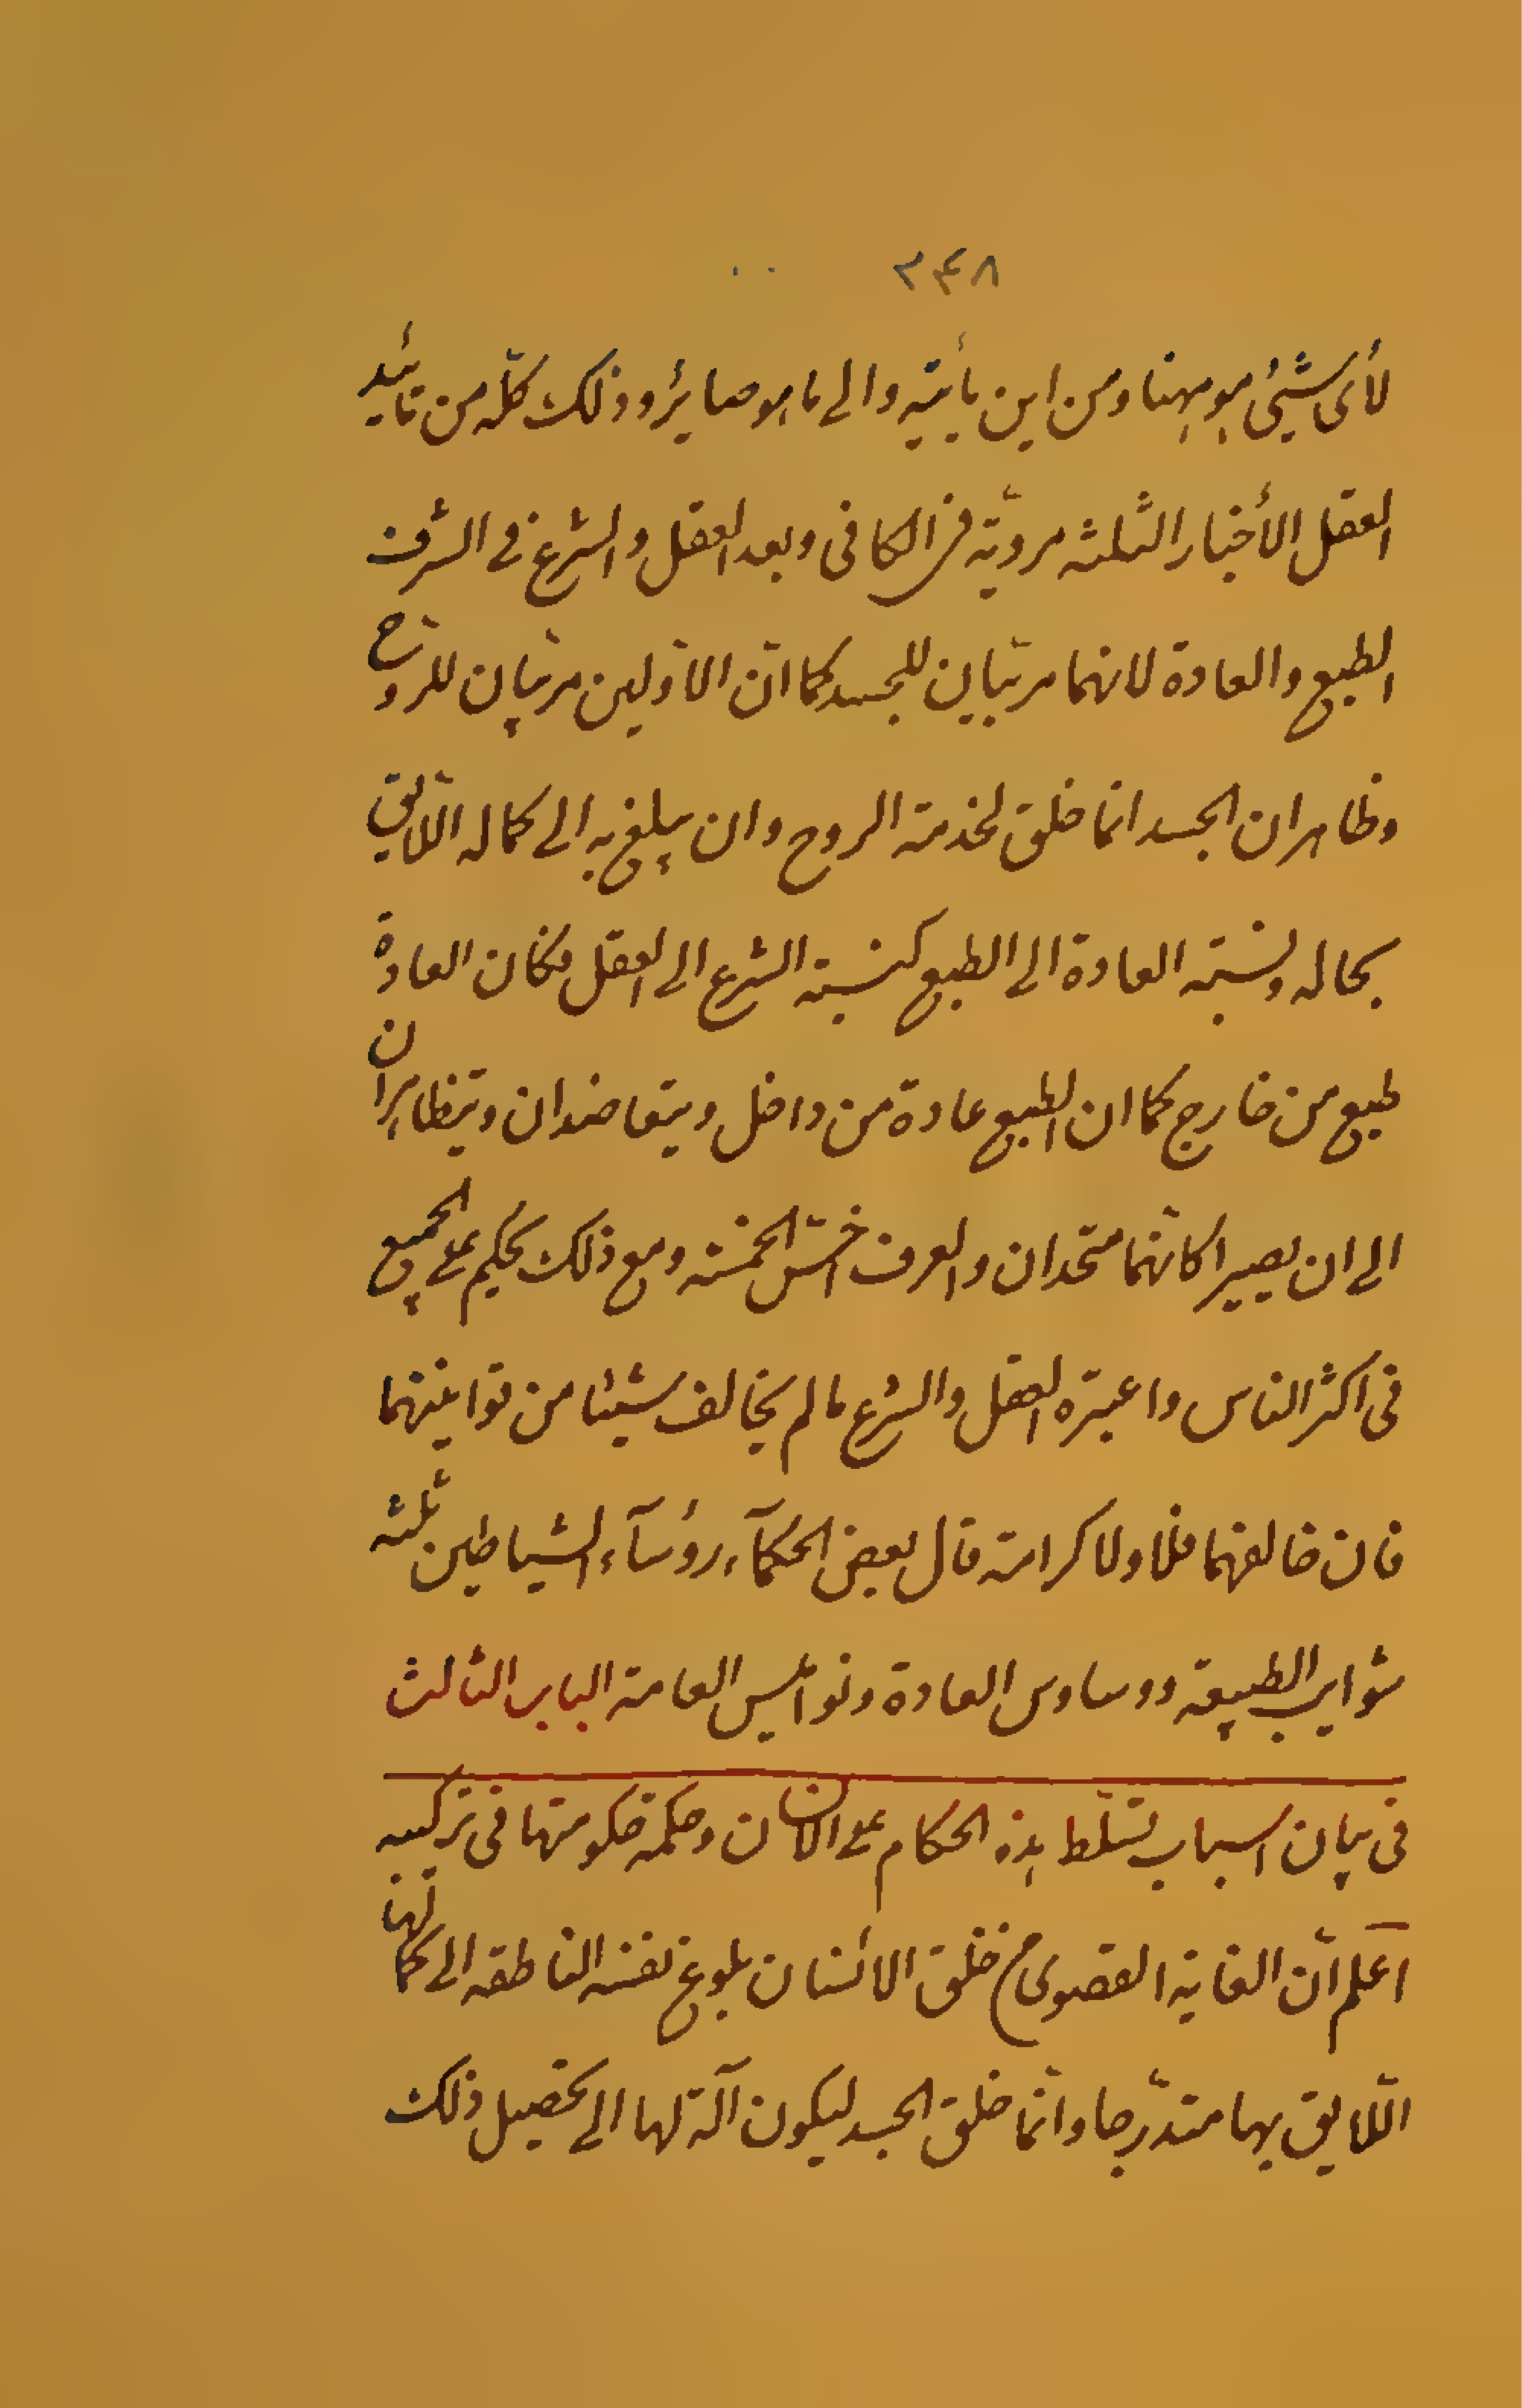 ٣۴٨
لأىّ شيئ هو هيهنا ومن اين يأتيه والى ما هو صاير و ذلك كلّه من تائيد
العقل الأخبار الثلثه مرويّة فى الكافى وبعد العقل والشرع فى الشرف
الطبع والعادة لانهما مربّيان للجسد كما انّ الاوّلين مربّيان للروح
وظاهر ان الجسد انما خلق لخدمة الروح وان يبلغ به الى كماله اللّايق
بحاله ونسبة العادة الى الطبع كنسبة الشرع الى العقل فكان العادة
طبع من خارج كما ان الطبع عادة من داخل ويتعاضدان ويتظاهران
الى ان يصيرا كانّهما متحدان والعرف اخسّ الخمسة ومع ذلك يحكم على الجميع
فى اكثر الناس واعتبره العقل والشرع ما لم يخالف شيئا من قوانينهما
فان خالفهما فلا ولا كرامة قال بعض الحكمآء رؤسآء الشياطين ثلثه
شوايب الطبيعة ووساوس العادة ونواميس العامة الباب الثالث
فى بيان اسباب تسلّط هذه الحكام على الانسان وحكمة حكومتها فى تركيبه
اعلم انّ الغاية القصوى من خلق الانسان بلوغ نفسه الناطقه الى كمالاتها
اللّايق بها متدرّجا وانّما خلق الجسد ليكون آلة لها الى تحصيل ذلك